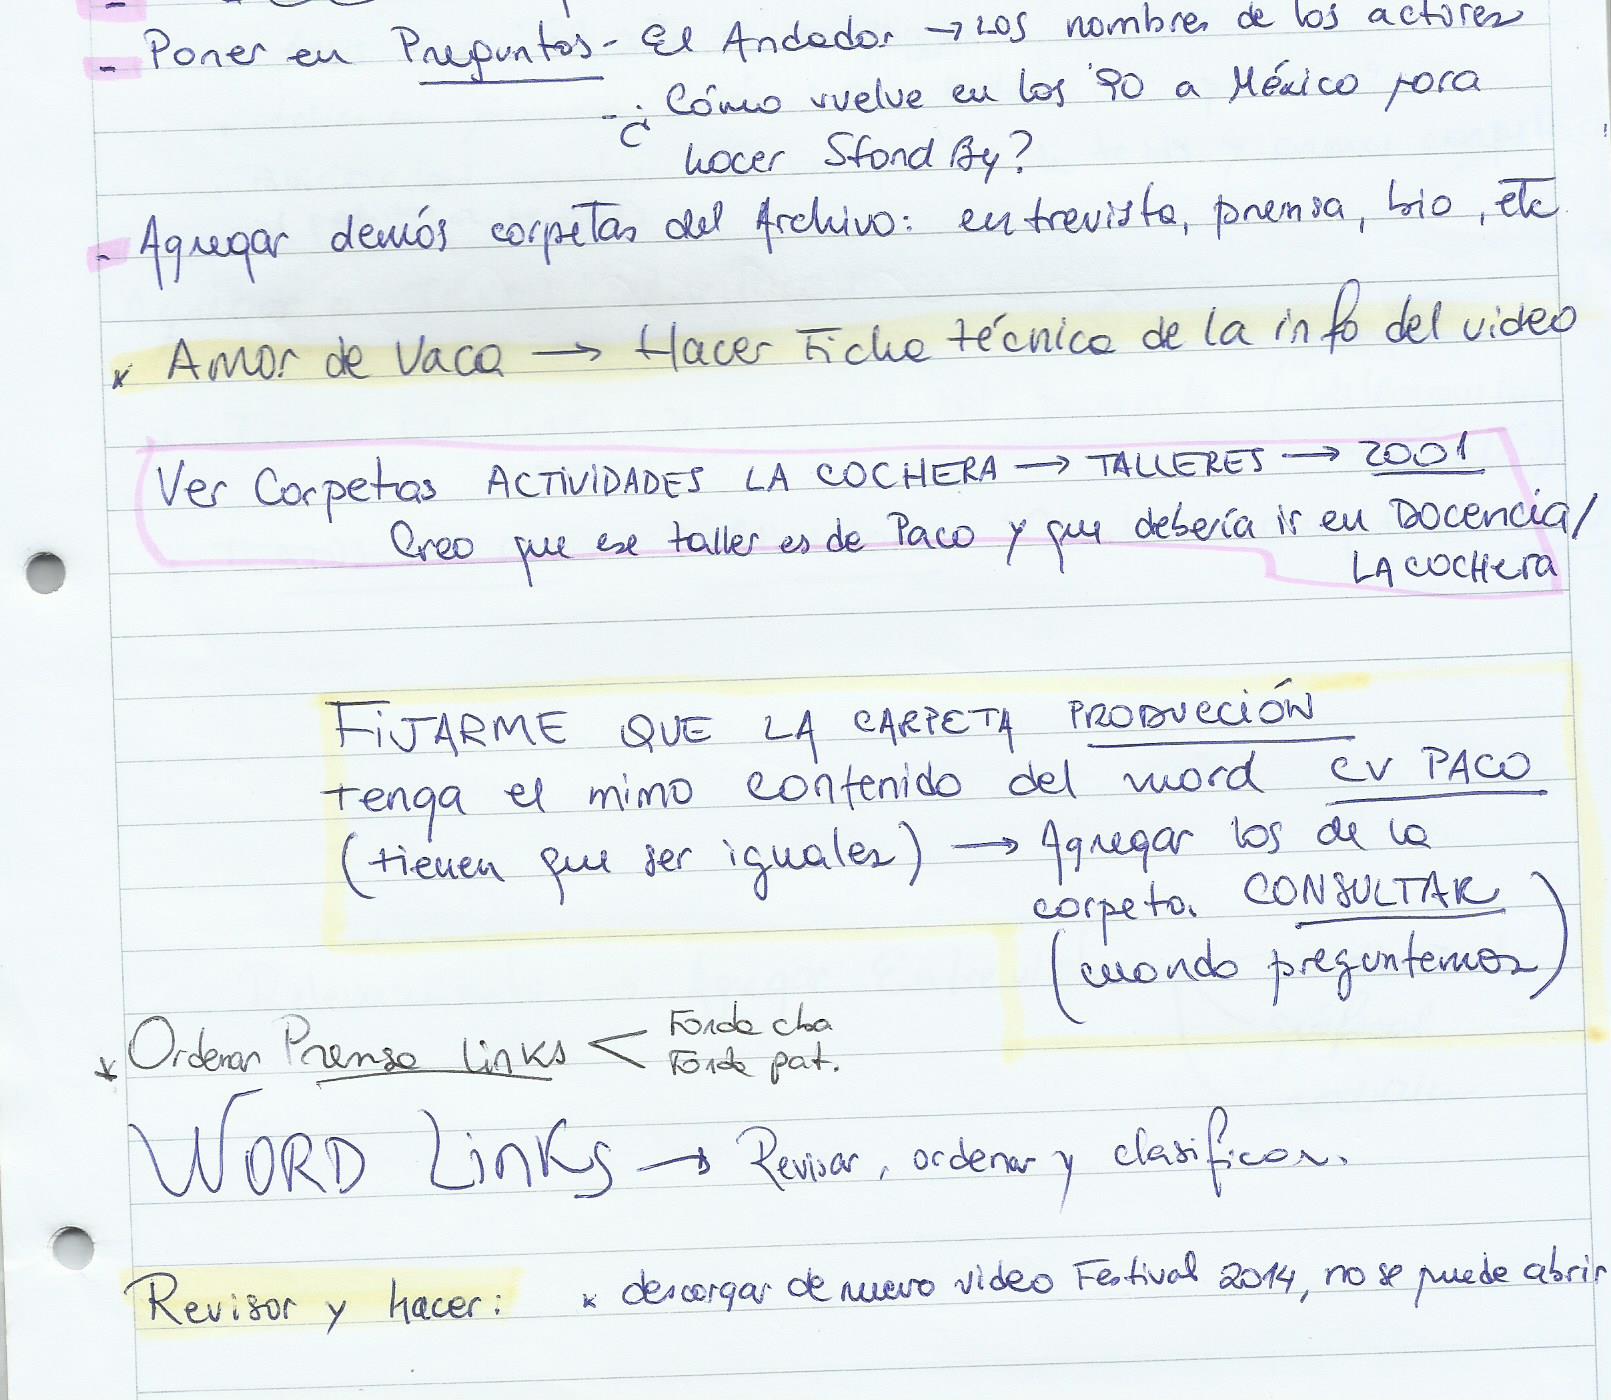 - Poner en Preguntas - El Andador → Los nombres de los actores
- ¿Cómo vuelve en los '90 a México para
hacer Stand By?
- Agregar demás carpetas del Archivo: entrevista, prensa, bio, etc
x Amor de Vaca → Hacer Ficha técnica de la info del video
Ver Carpetas ACTIVIDADES LA COCHERA → TALLERES → 2001
Creo que ese taller es de Paco y que debería ir en DOCENCIA/
LA COCHERA
FIJARME QUE LA CARPETA PRODUCCIÓN
tenga el mimo contenido del word CV PACO
(tienen que ser iguales) → Agregar los de la
carpeta. CONSULTAR
(cuando preguntemos)
x Ordenar Prensa Links < Fonde cba
Fonde pat.
WORD LINKS → Revisar, ordenar y clasificar.
Revisar y hacer: x descargar de nuevo video Festival 2014, no se puede abrir